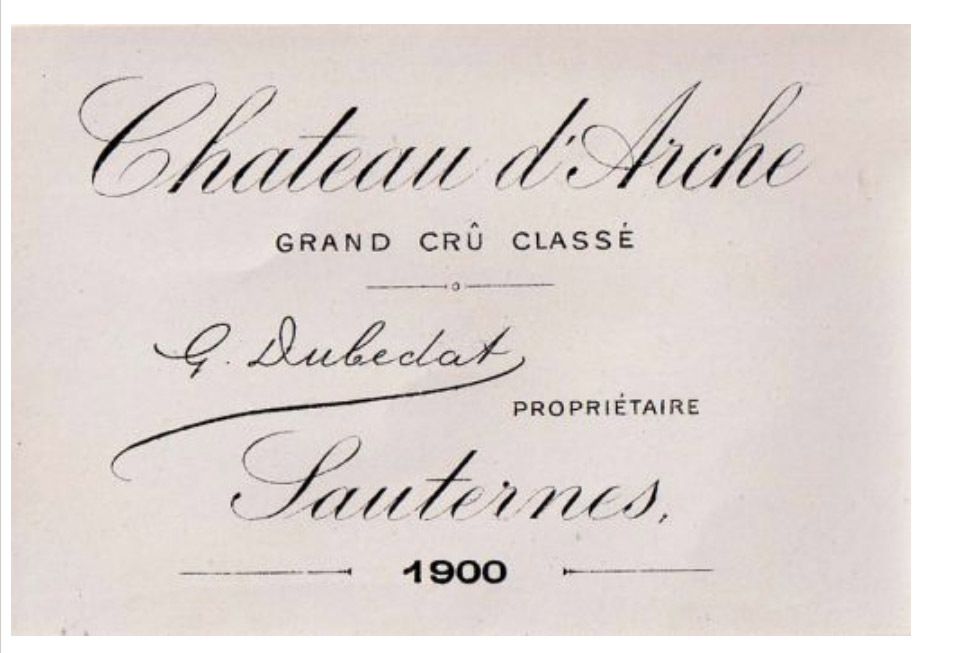 Chateau d'Arche
GRAND CRÛ CLASSÉ
G. Dubedat
PROPRIÉTAIRE
Sauternes,
1900